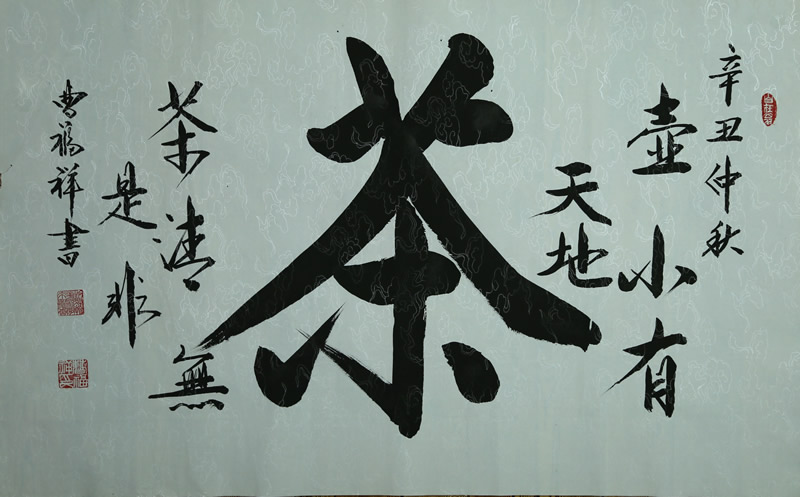 辛丑仲秋
壺小有
天地
茶
茶清無
是非
曹福祥書